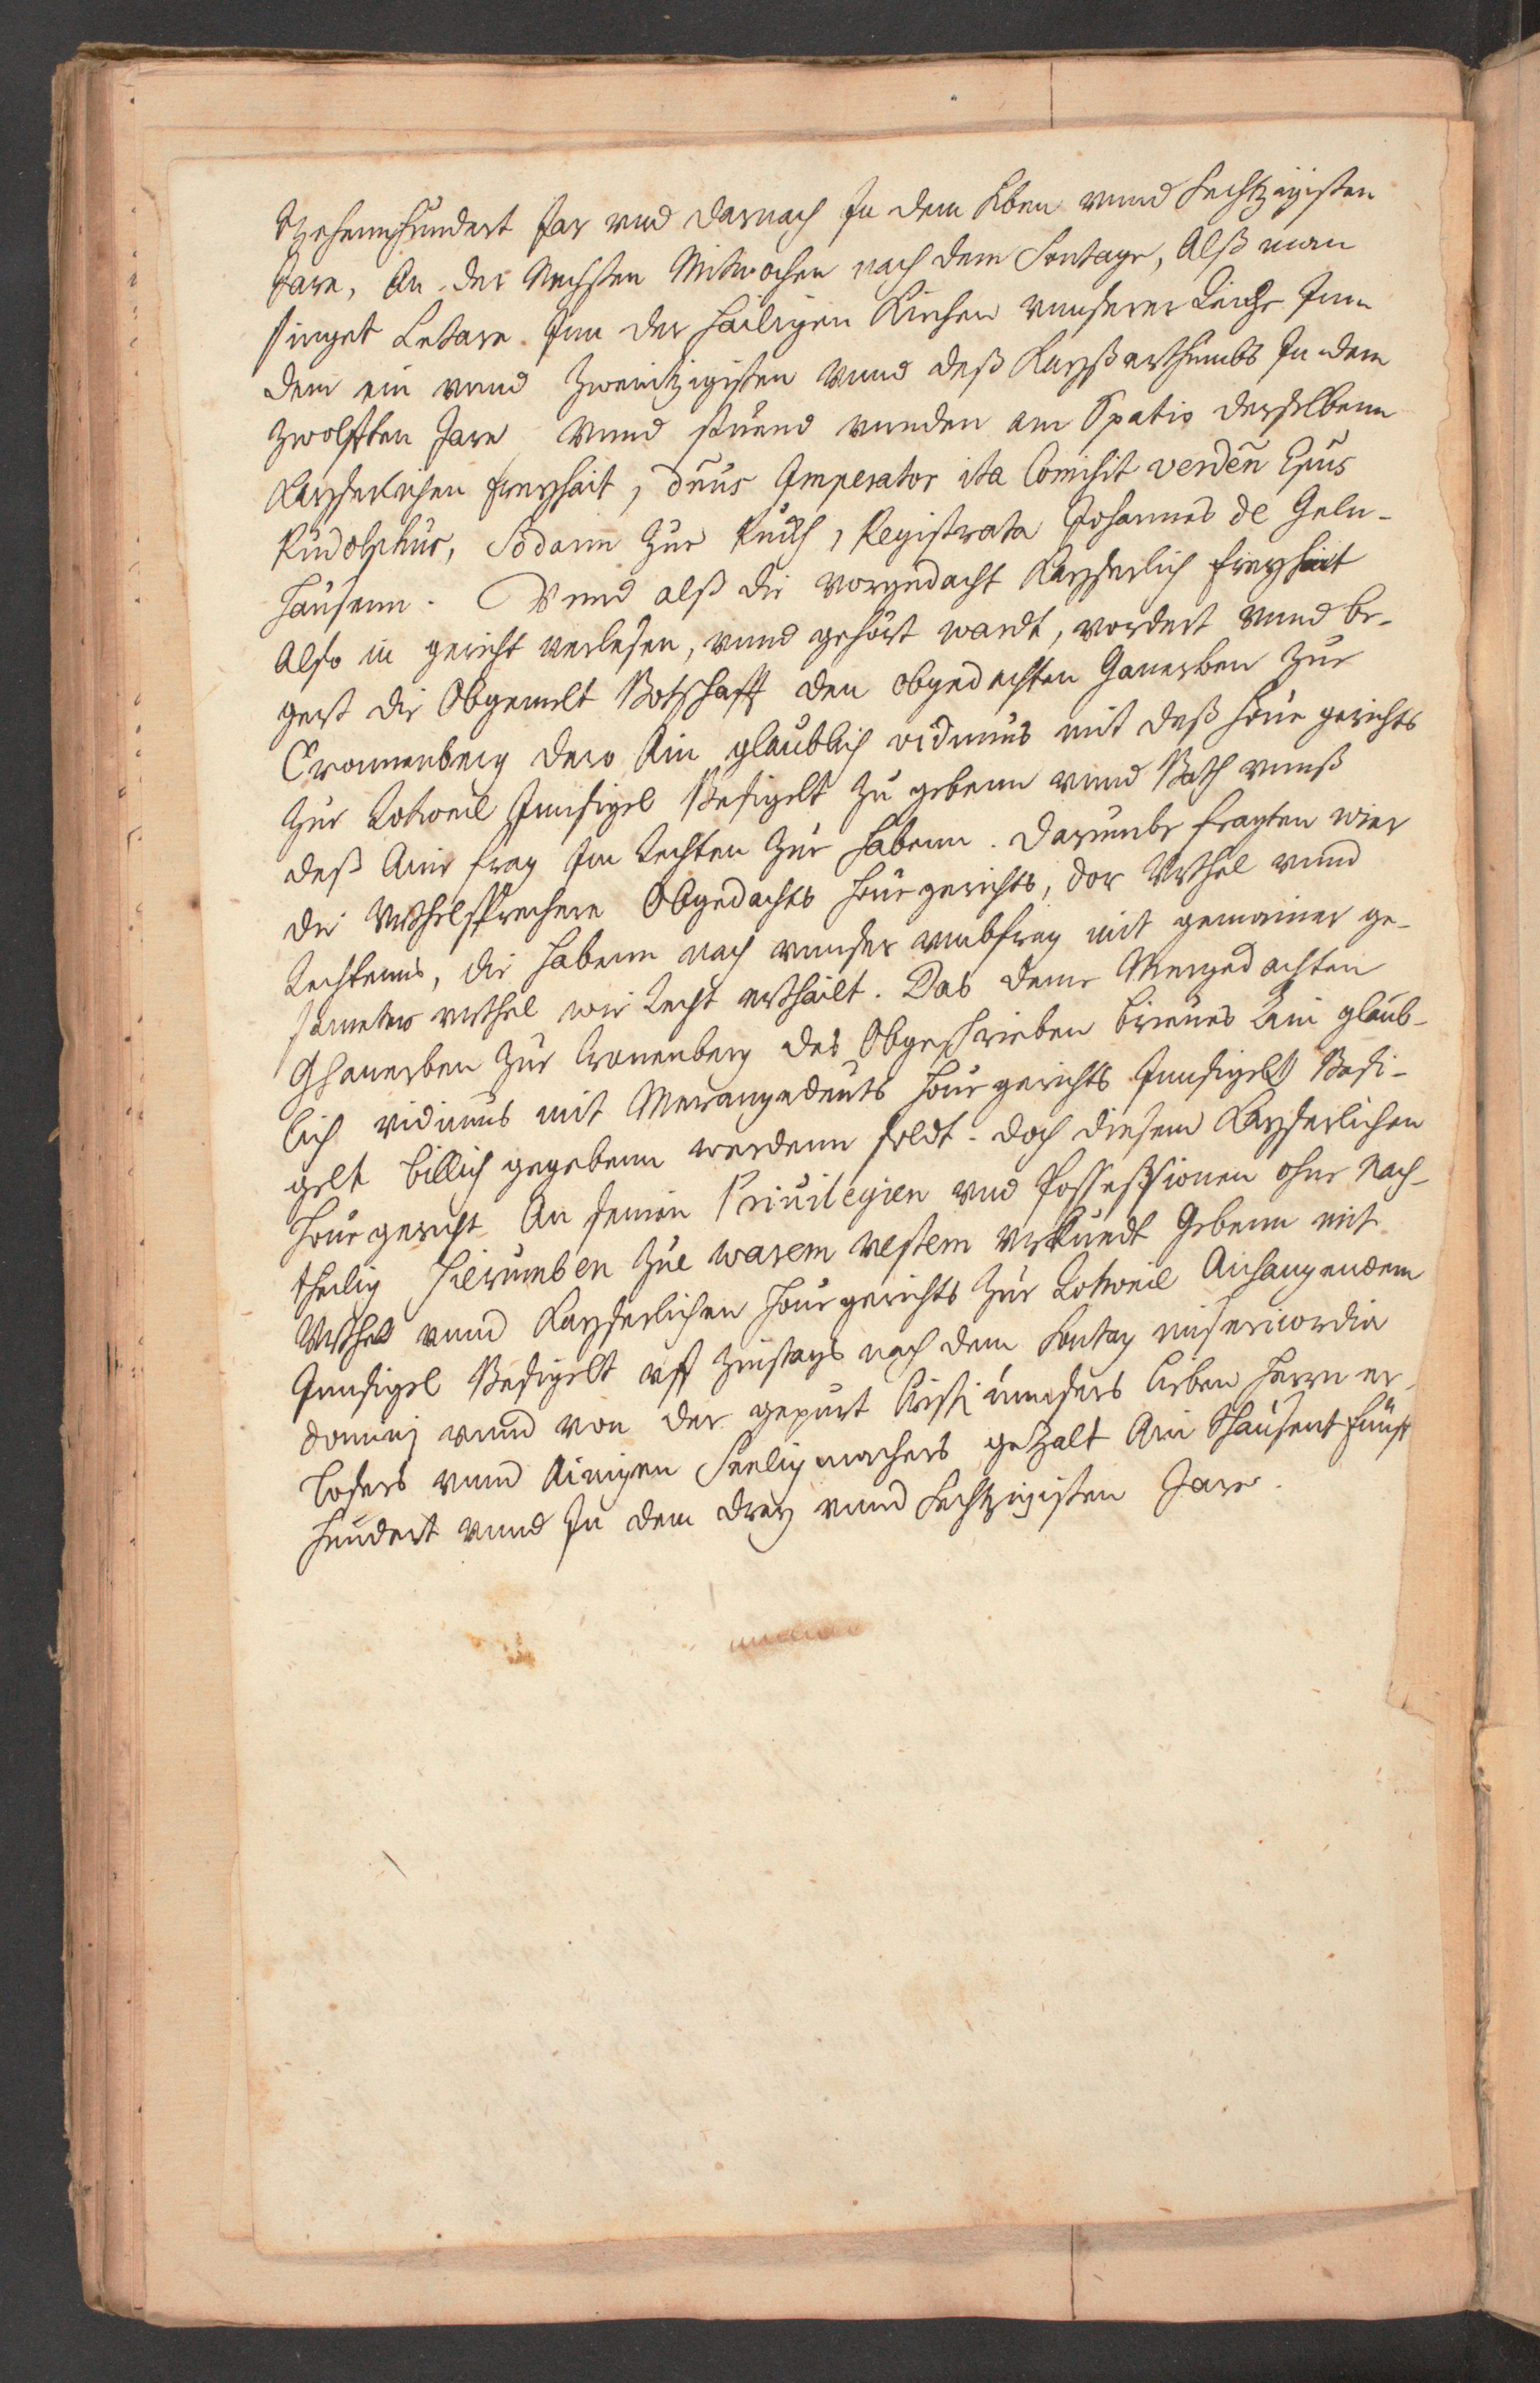 Zehennhundert Jar vnd darnach In dem Siben vnnd Sechtzigisten
Jare, An der Nechsten Mitwochen nach dem Sontage, Alß man
singet Letare. Inn der Hailigen Kirchen vnnserer Reiche Inn
dem ein vnnd zwentzigisten vnnd deß Kayßerthumbs In dem
zwolften Jare vnnd stuend vnnden am Spatio derselbenn
Kayserlichen Freyhait, dnus Imperator ita Comisit verdeñ Epus
Rudolphus, Sodann zue Rugkh, Registrata Johannes de Geln-
hausenn. Vnnd alß die vorgedacht Kayserlich Freyhait
Also in gericht verlesen, vnnd gehört wardt, vordert vnnd be-
gert die Obgemelt Botschafft den obgedachten Ganerben zue
Cronnenberg dero Ain glaublich vidimus mit deß Houe gerichts
zue Rotweil Innsigel Besigelt zu gebenn vnnd Bath vnnß
deß Ainr frag Im Rechten zue habenn. Darumbe fragten wier
die Vrthelsprechere Obgedachts Houegerichts, der Vrthel vnnd
Rechtenns, die habenn nach vnnser vmbfrag mit gemainer ge-
samelter vrthel wie Recht erthailt. Das denn Mergedachten
Ghanerben zue Cronenberg des Obgeschrieben brieues Ain glaub-
lich vidimus mit Merangedeuts Houegerichts Innsigell Besi-
gelt billich gegebenn werdenn soldt. doch diesem Kayserlichen
Houegericht An seinen Priuilegien vnd Possessionen ohne Nach-
theilig Hierumben zue warem vestem vrkundt Gebenn mit
Vrthell vnnd Kayserlichen Houegerichts zue Rotweil Anhangendem
Innsigel Besigelt vff Zinstags nach dem Sontag misericordia
Dominj vnnd von der gepurt Cristi vnnsers lieben Herrn er-
lösers vnnd Ainigen Seeligmachers gezalt Ain Thausent Funf
hundert vnnd In dem drey vnnd Sechtzigisten Jare.